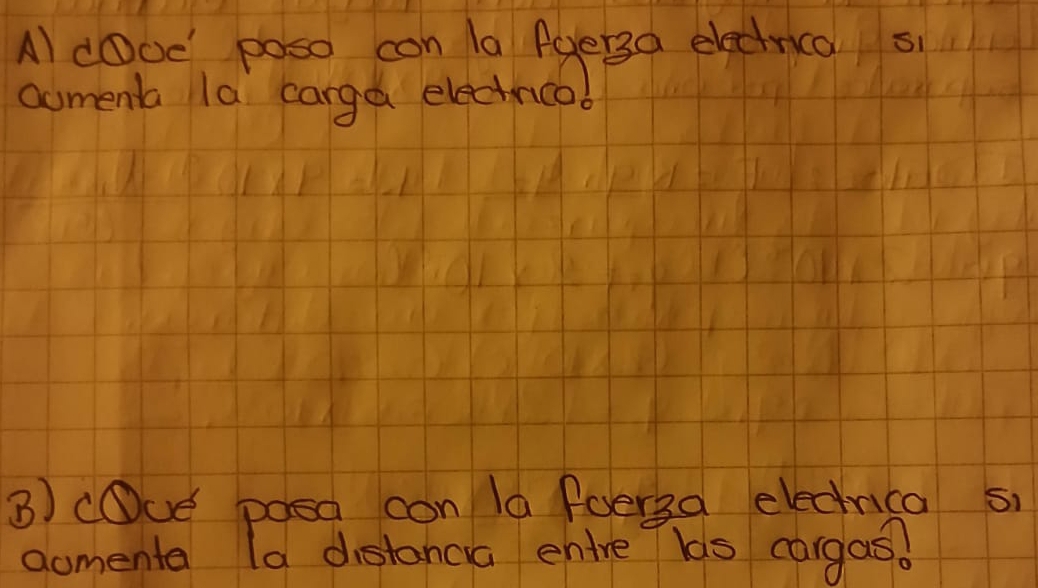 A) ¿Qué pasa con la fuerza electrica si
aumenta la carga electrica?
B) ¿Qué pasa con la fuerza electrica si
aumenta la distancia entre las cargas?